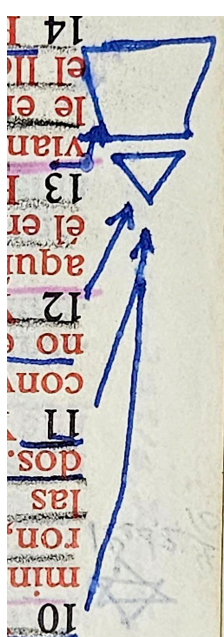 10
min
ron,
las
dos.
11
conv
no e
12
aquí
él en
13
vian
le en
el lla
14